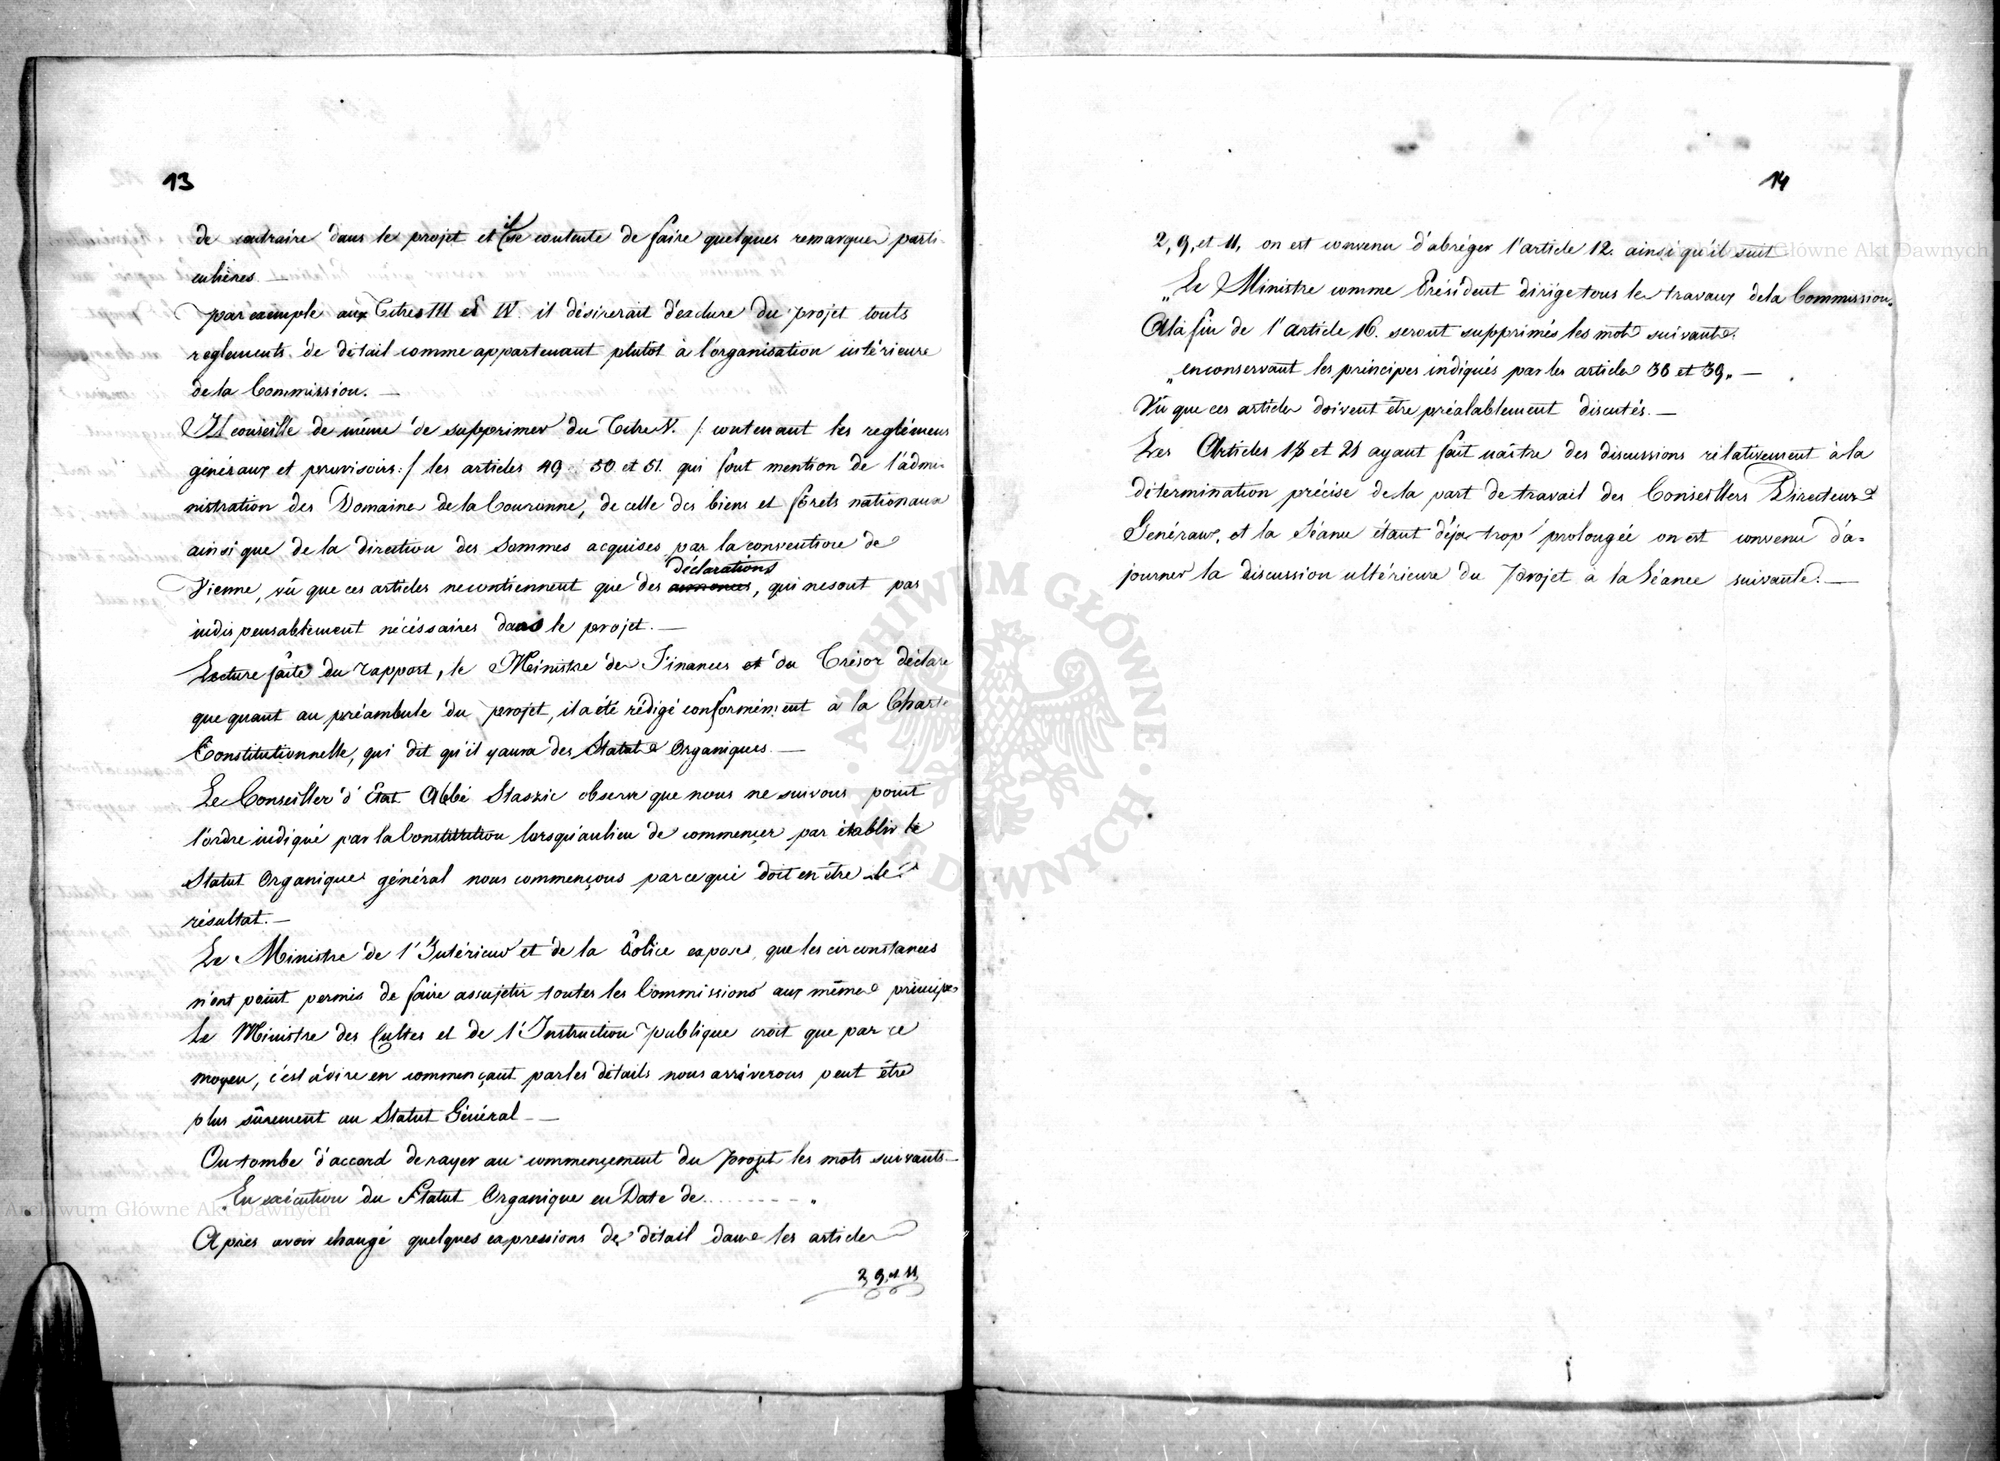 13
de contraire dans le projet et il se contente de faire quelques remarques parti-
culières. —
par exemple aux Titres III et IV. il désirerait d'exclure du projet touts
reglements de détail comme appartenant plutôt à l'organisation intérieure
de la Commission. —
Il conseille de même de supprimer du Titre V. /: contenant les reglémens
généraux et provisoirs :/ les articles 49 50 et 51. qui font mention de l'admi-
nistration des Domaines de la Couronne, de celle des biens et forêts nationaux
ainsi que de la direction des sommes acquises par la convention de
déclarations
Vienne, vû que ces articles ne contiennent que des annonces, qui ne sont pas
indispensablement nécéssaires dans le projet. —
Lecture faite du rapport, le Ministre des Finances et du Trésor déclare
que quant au préambule du projet, il a été rédigé conformément à la Charte
Constitutionnelle, qui dit qu'il y aura des Statuts Organiques. —
Le Conseiller d'Etat Abbé Staszic observe que nous ne suivons point
l'ordre indiqué par la Constitution lorsqu'au lieu de commencer par établir le
Statut Organique général nous commençons par ce qui doit en être le
résultat. —
Le Ministre de l'Intérieur et de la Police expose, que les circonstances
n'ont point permis de faire assujetir toutes les Commissions aux mêmes principes
Le Ministre des Cultes et de l'Instruction publique croit que par ce
moyen, c'est à dire en commençant par les détails nous arriverons peut être
plus sûrement au Statut Général. —
On tombe d'accord de rayer au commencement du projet les mots suivants —
„En exécution du Statut Organique en Date de ........ „
Après avoir changé quelques expressions de détail dans les articles
2, 9, et 11,
14
2, 9, et 11, on est convenu d'abréger l'article 12. ainsi qu'il suit
„Le Ministre comme Président dirige tous les travaux de la Commission„
A la fin de l'article 16. seront supprimés les mots suivants.
„en conservant les principes indiqués par les articles 38 et 39„ —
Vû que ces articles doivent être préalablement discutés. —
Les Articles 18 et 21 ayant fait naître des discussions relativement à la
détermination précise de la part de travail des Conseillers Directeurs
Generaux, et la Séance étant déja trop prolongée on est convenu d'a-
journer la discussion ultérieure du projet à la Séance suivante. —
ARCHIWUM GŁÓWNE AKT DAWNYCH
Archiwum Główne Akt Dawnych
Archiwum Główne Akt Dawnych